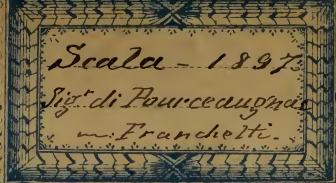 Scala - 1897.
Sigr di Pourceaugnac
m. Franchetti.